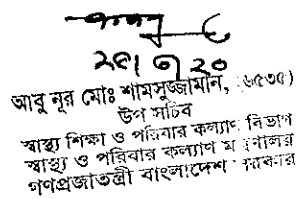 ২৪/৭/২০
আবু নূর মোঃ শামসুজ্জামান, :৬৫৩৫)
উপ সচিব
স্বাস্থ্য শিক্ষা ও পরিবার কল্যাণ বিভাগ
স্বাস্থ্য ও পরিবার কল্যাণ মন্ত্রণালয়
গণপ্রজাতন্ত্রী বাংলাদেশ সরকার